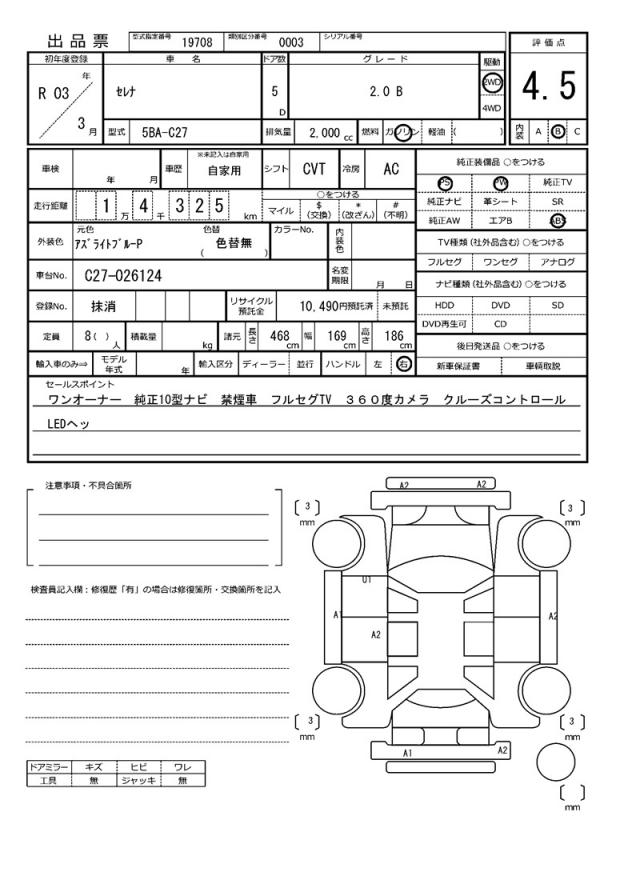 出品票 型式指定番号 19708 類別区分番号 0003 シリアル番号
評価点
4.5
内装 A B C
初年度登録 車名 ドア数 グレード 駆動
R 03 年 3 月 セレナ 5 D 2.0 B 2WD 4WD
型式 5BA-C27 排気量 2,000 cc 燃料 ガソリン 軽油 ( )
車検 年 月 車歴 ※未記入は自家用 自家用 シフト CVT 冷房 AC
走行距離 1 万 4 千 3 2 5 km ○をつける マイル $ (交換) * (改ざん) # (不明)
外装色 元色 アズライトブルーP 色替 ( 色替無 ) カラーNo. 内装色
車台No. C27-026124 名変期限 月 日
登録No. 抹消 リサイクル預託金 10,490円預託済 未預託
定員 8( ) 人 積載量 kg 諸元 長さ 468 cm 幅 169 cm 高さ 186 cm
輸入車のみ⇒ モデル年式 年 輸入区分 ディーラー 並行 ハンドル 左 右
純正装備品 ○をつける
PS PW 純正TV
純正ナビ 革シート SR
純正AW エアB ABS
TV種類(社外品含む)○をつける
フルセグ ワンセグ アナログ
ナビ種類(社外品含む)○をつける
HDD DVD SD
DVD再生可 CD
後日発送品 ○をつける
新車保証書 車輌取説
セールスポイント
ワンオーナー 純正10型ナビ 禁煙車 フルセグTV 360度カメラ クルーズコントロール
LEDヘッ
注意事項・不具合箇所
検査員記入欄:修復歴「有」の場合は修復箇所・交換箇所を記入
A2 A2
3 mm
3 mm
U1
A1 A2
A2
3 mm
3 mm
A1 A2
mm
ドアミラー キズ ヒビ ワレ
工具 無 ジャッキ 無